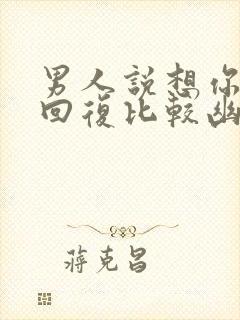 男人說想你
回復比較幽
蔣克昌